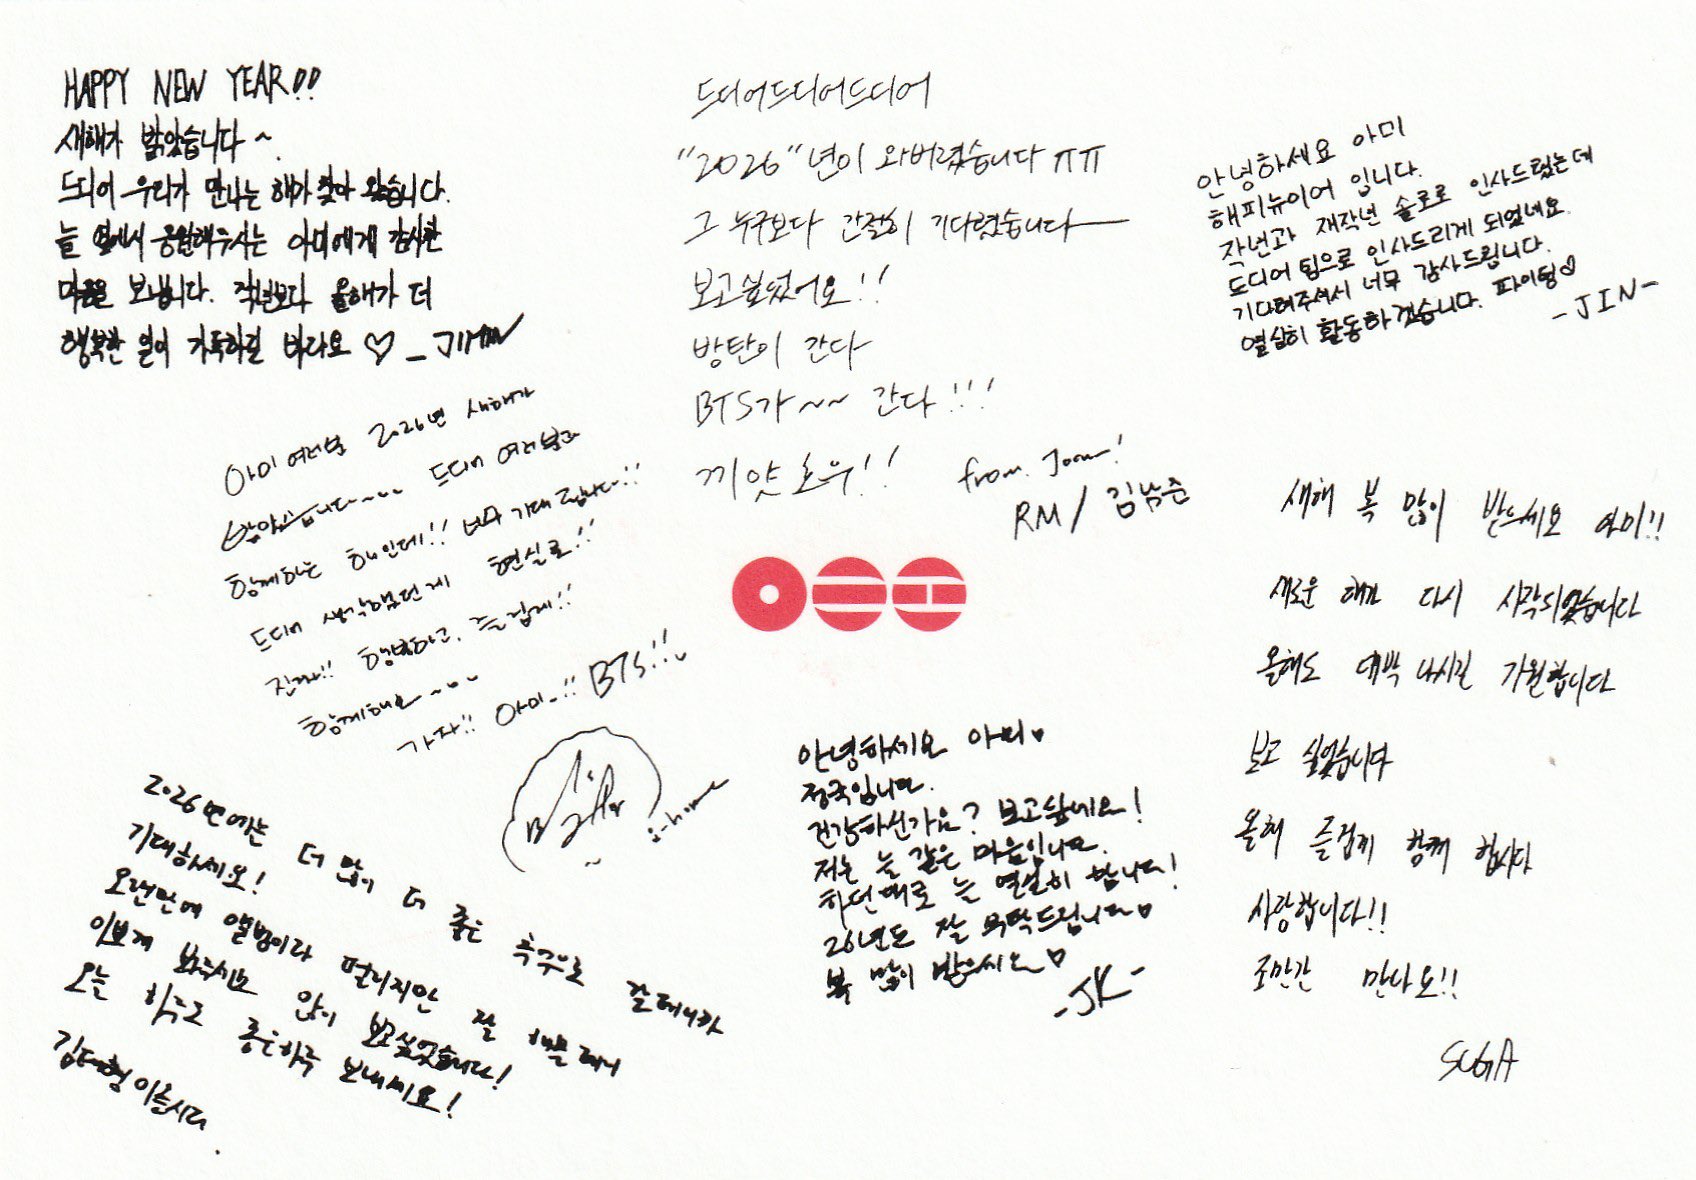 HAPPY NEW YEAR!!
새해가 밝았습니다~
드디어 우리가 만나는 해가 찾아 왔습니다.
늘 옆에서 응원해주시는 아미에게 감사한
마음을 보냅니다. 작년보다 올해가 더
행복한 일이 가득하길 바라요 ♡ - JIMIN
드디어드디어드디어
"2026"년이 와버렸습니다 ㅠㅠ
그 누구보다 간절히 기다렸습니다—
보고싶었어요!!
방탄이 간다
BTS가~~ 간다!!!
끼얏호우!!
from. Joon!
RM / 김남준
안녕하세요 아미
해피뉴이어 입니다.
작년과 재작년 솔로로 인사드렸는데
드디어 팀으로 인사드리게 되었네요.
기다려주셔서 너무 감사드립니다.
열심히 활동하겠습니다. 파이팅♡
-JIN-
아미 여러분 2026년 새해가
밝았습니다~~
드디어 여러분과
함께하는 해인데!! 너무 기대됩니다!!
드디어 생각했던게 현실로!!
진짜!! 행복하고, 즐겁게!!
함께해요~
가자!! 아미..!! BTS!!
j-hope
새해 복 많이 받으세요 아미!!
새로운 해가 다시 시작되었습니다
올해도 대박 나시길 기원합니다
보고 싶었습니다
올해 즐겁게 함께 합시다
사랑합니다!!
조만간 만나요!!
SUGA
2026년에는 더 많이 더 좋은 추억으로 갈테니까
기대하세요!
오랜만에 앨범이라 떨리지만 잘 해볼테니
이쁘게 봐주시고 많이 보고싶었습니다!
오늘 하루도 좋은하루 보내세요!
김태형이였습니다.
안녕하세요 아미♥
정국입니다.
건강하신가요? 보고싶네요!
저는 늘 같은 마음입니다.
하던대로 늘 열심히 합니다!
26년도 잘 부탁드립니다♥
복 많이 받으세요♡
-JK-